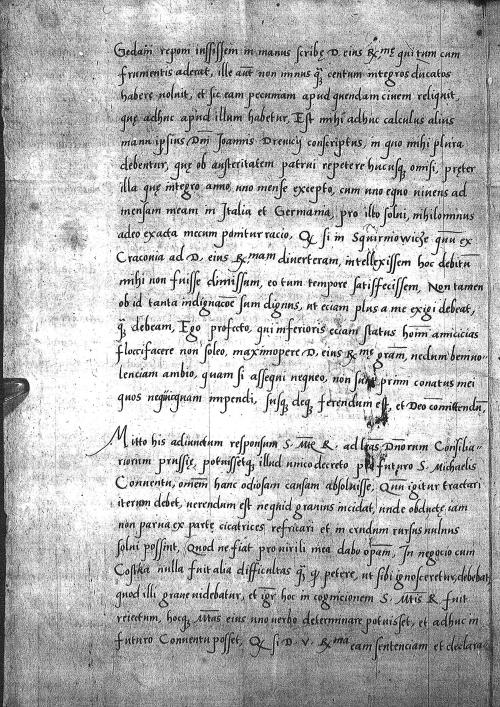 Gedanj repom inssissem in manus scribę D. eius R.mę qui tum cum
frumentis aderat, ille aūt non minus q̄ centum integros ducatos
habere voluit, et sic eam pecuniam apud quendam ciuem reliquit,
quę adhuc apud illum habetur, Est mihi adhuc calculus alius
manu ipsius Dni Joannis Drevicij conscriptus, in quo mihi plura
debentur, quę ob austeritatem patrui repetere hucusq, omisi, pręter
illa quę integro anno, uno mense excepto, cum uno equo uiuens ad
mensam meam in Italia et Germania, pro illo solui, nihilominus
adeo exacta mecum ponitur racio, Q si in Squirniowicze quū ex
Craconia ad D. eius R.mam diuerteram, intellexissem hoc debitū
mihi non fuisse dimissum, eo tum tempore satisfecissem, Non tamen
ob id tanta indignacōe sum dignus, ut eciam plus a me exigi debeat,
q̄ debeam, Ego profecto, qui inferioris eciam status hoīm amicicias
floccifacere non soleo, maximopere D. eius R.mę graīam, nedum beniuo-
lenciam ambio, quam si assequi nequeo, non sunt primi conatus mei
quos nequicquam impendi, susq, deq, ferendum est, et Deo comittendū,
Mitto his adiunctum responsum S. Mtis R. ad lr̄as Dnorum Consilia-
riorum prussię, potuissetq, illud unico decreto pro futuro S. Michaelis
Conuentu, omēm hanc odiosam causam absoluisse, Quū igitur tractari
iterum debet, uerendum est nequid grauius incidat, unde obductę iam
non parua ex parte cicatrices refricari et in crudum rursus uulnus
solui possint, Quod ne fiat pro uirili mea dabo opam, In negocio cum
Costka nulla fuit alia difficultas q̄ q petere, ut sibi ignosceretur, debebat
quod illi graue uidebatur, et igr hoc in cognicionem S. Mtis R. fuit
reiectum, hocq, Mtas eius uno uerbo determinare potuisset, et adhuc in
futuro Conuentu posset, Q si D. V. R.ma eam sentenciam et declara-